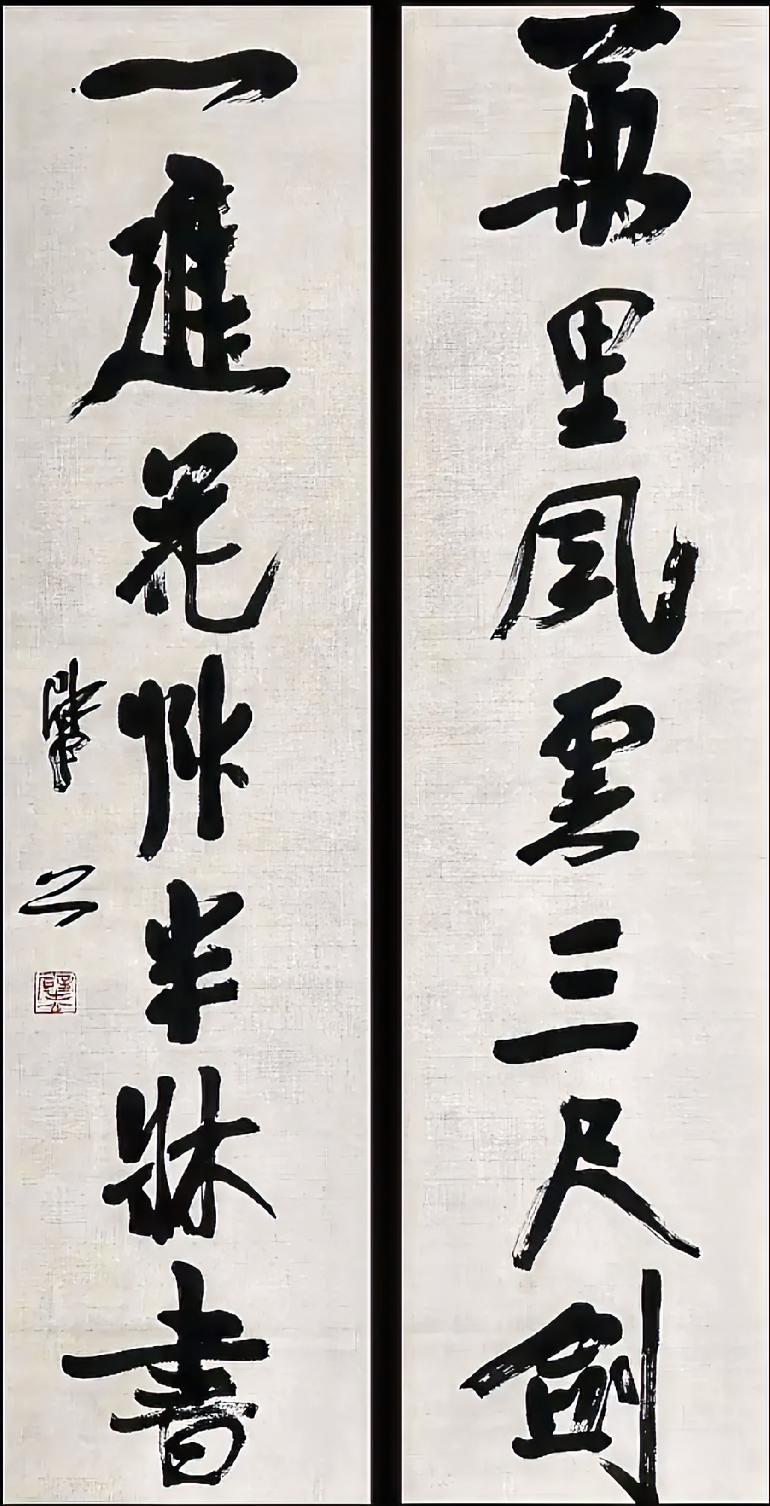 萬里風雲三尺劍
一庭花艸半牀書